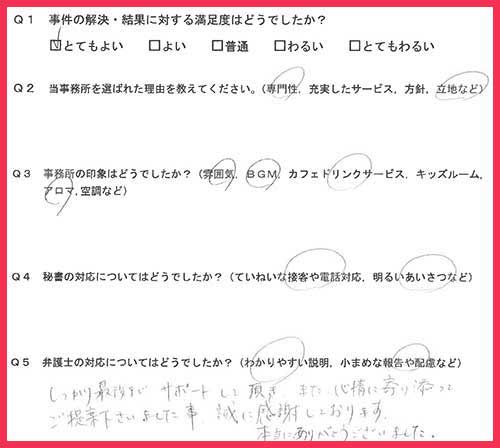 Q1 事件の解決・結果に対する満足度はどうでしたか?
☑とてもよい □よい □普通 □わるい □とてもわるい
Q2 当事務所を選ばれた理由を教えてください。(専門性, 充実したサービス, 方針, 立地など)
Q3 事務所の印象はどうでしたか?(雰囲気, BGM, カフェドリンクサービス, キッズルーム,
アロマ,空調など)
Q4 秘書の対応についてはどうでしたか?(ていねいな接客や電話対応, 明るいあいさつなど)
Q5 弁護士の対応についてはどうでしたか?(わかりやすい説明, 小まめな報告や配慮など)
しっかり最後まで サポートして頂き また、心情に寄り添って
ご提案下さいました事、誠に感謝しております。
本当にありがとうございました。